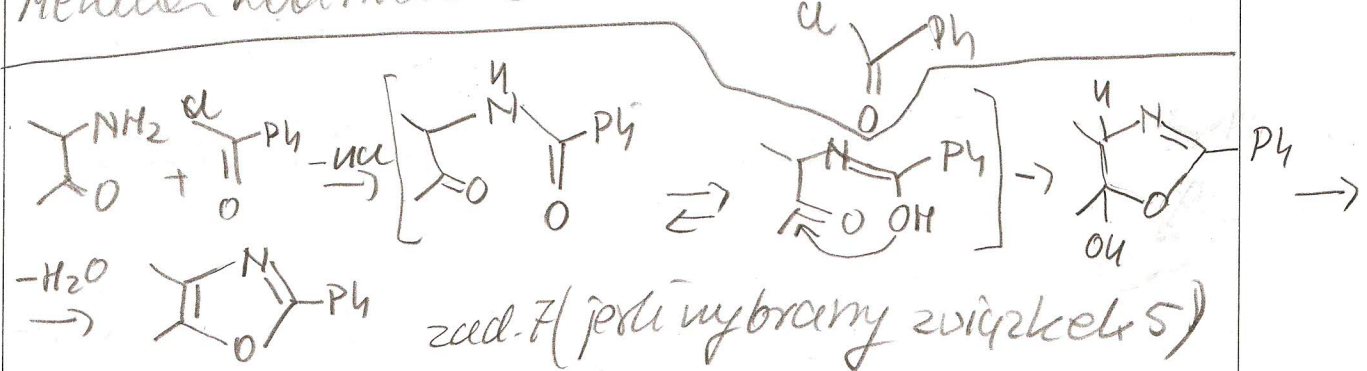 Cl
Ph
O
NH2 + Cl Ph O O -HCl → [ H N Ph O O ⇌ N Ph O OH ] → H N Ph O OH →
-H2O → N Ph O zad. 7 (jeśli wybrany związek 5)